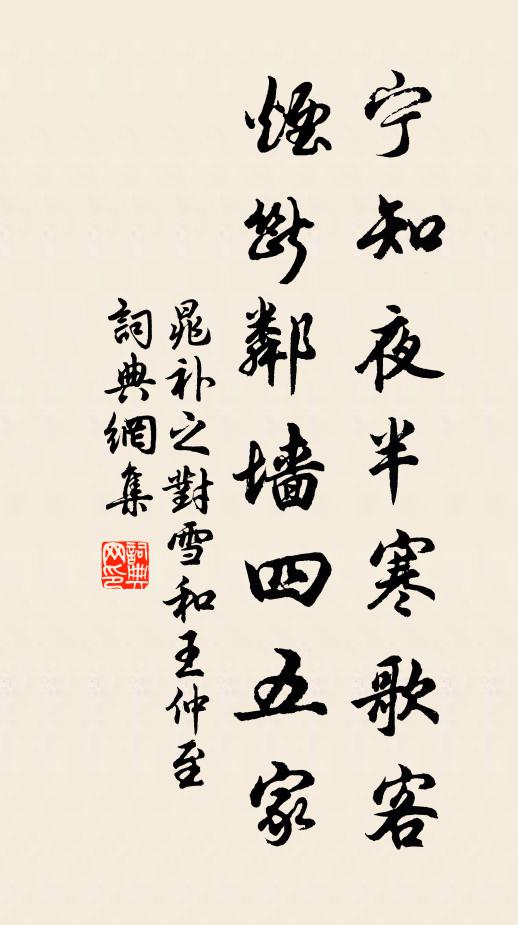 宁知夜半寒歌客
煙斷鄰墙四五家
晁补之對雪和王仲至
詞典網集
詞典网印